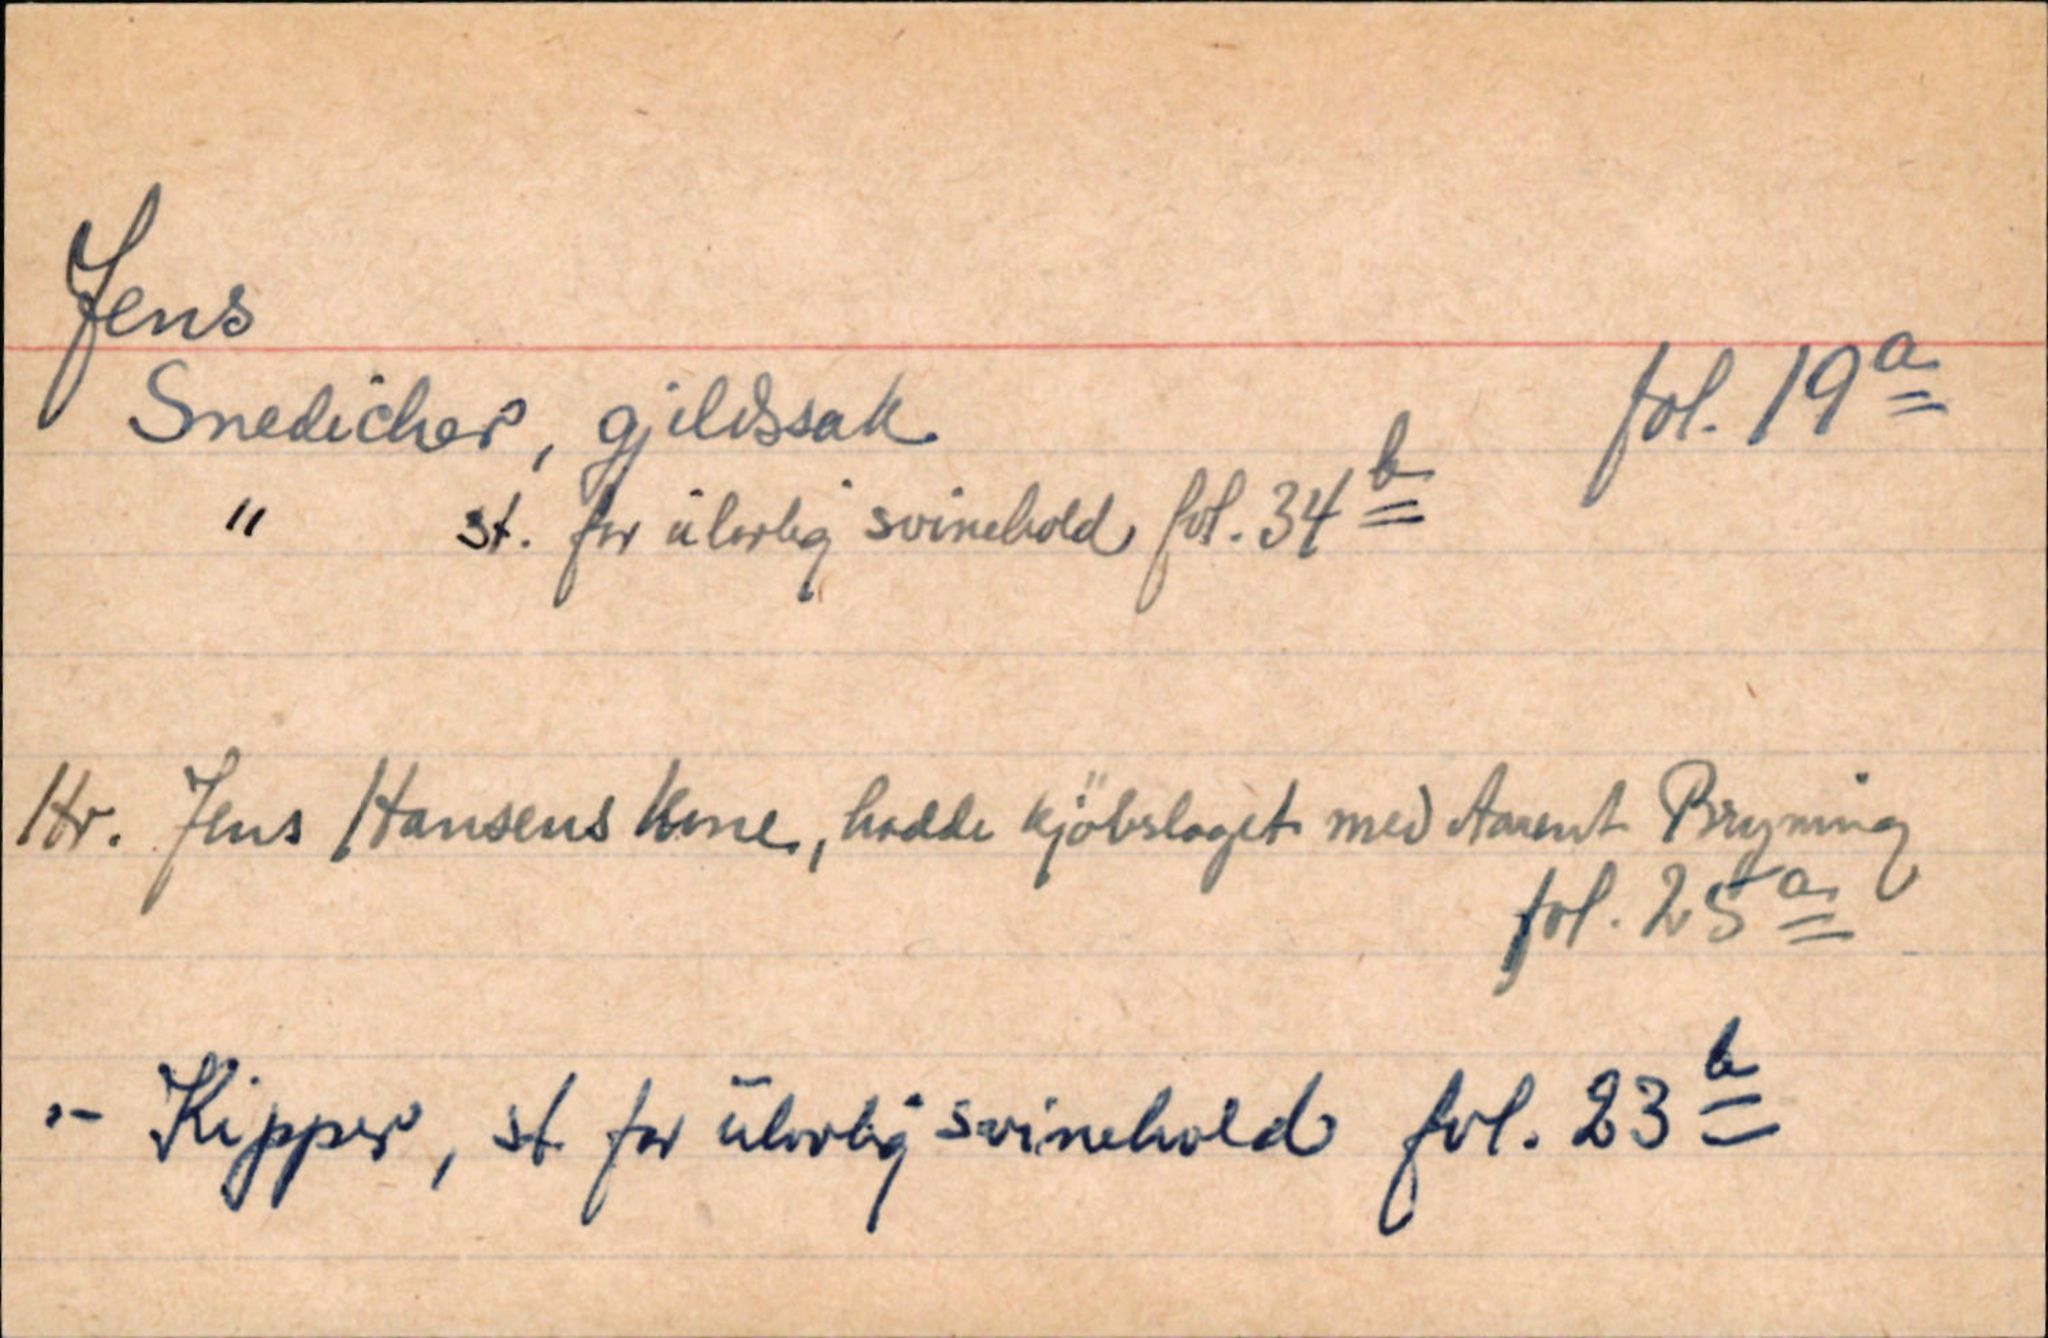 Jens
Snedicher, gjeldssak fol. 19a
" st. for ulovlig svinehold fol. 34b
Hr. Jens Hansens kone, hadde kjöbslaget med Aarent Bryning
fol. 25a
:- Kipper, st. for ulovlig svinehold fol. 23b